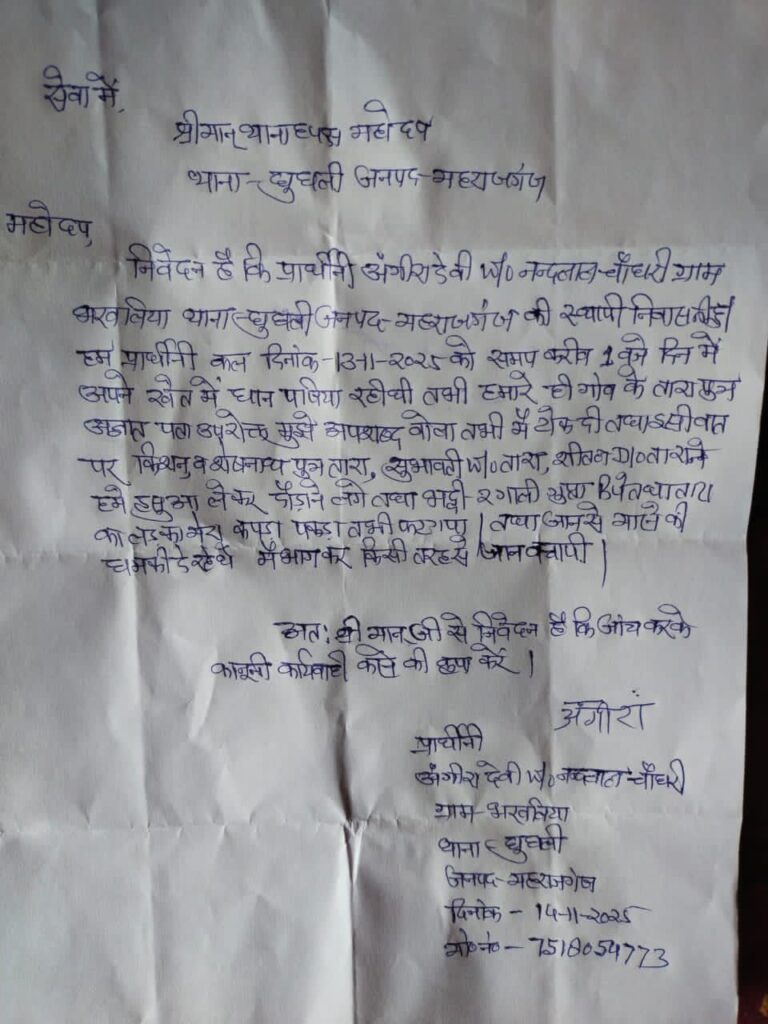 सेवा में,
श्रीमान् थानाध्यक्ष महोदय
थाना - घुघली जनपद - महराजगंज
महोदय,
निवेदन है कि प्रार्थीनी अंगीरा देवी W/o नन्दलाल चौधरी ग्राम
भरवलिया थाना - घुघली जनपद - महराजगंज की स्थायी निवासीनी हूँ।
हम प्रार्थीनी कल दिनांक - 13-11-2025 को समय करीब 1 बजे दिन में
अपने खेत में धान रही थी तभी हमारे ही गाँव के तारा पुत्र
अज्ञात पता उपरोक्त मुझे अपशब्द बोला तभी मै रोक दी तथा इसी बात
पर किशुन व शेषनाथ पुत्र तारा, सुभावती W/o तारा, शीतल D/o तारा ने
हमे हसुआ लेकर दौड़ाने लगे तथा भद्दी २ गाली तथा तारा
का लडका मेरा कपड़ा पकड़ा तभी फट गया। तथा जान से मारने की
धमकी दे रहे थे मै भाग कर किसी तरह से जान बचायी।
अतः श्रीमान जी से निवेदन है कि जांच करके
कानूनी कार्यवाही करने की कृपा करें।
अंगीरा
प्रार्थीनी
अंगीरा देवी W/o नन्दलाल चौधरी
ग्राम - भरवलिया
थाना - घुघली
जनपद - महराजगंज
दिनांक - 14-11-2025
मो०नं० - 7518054773